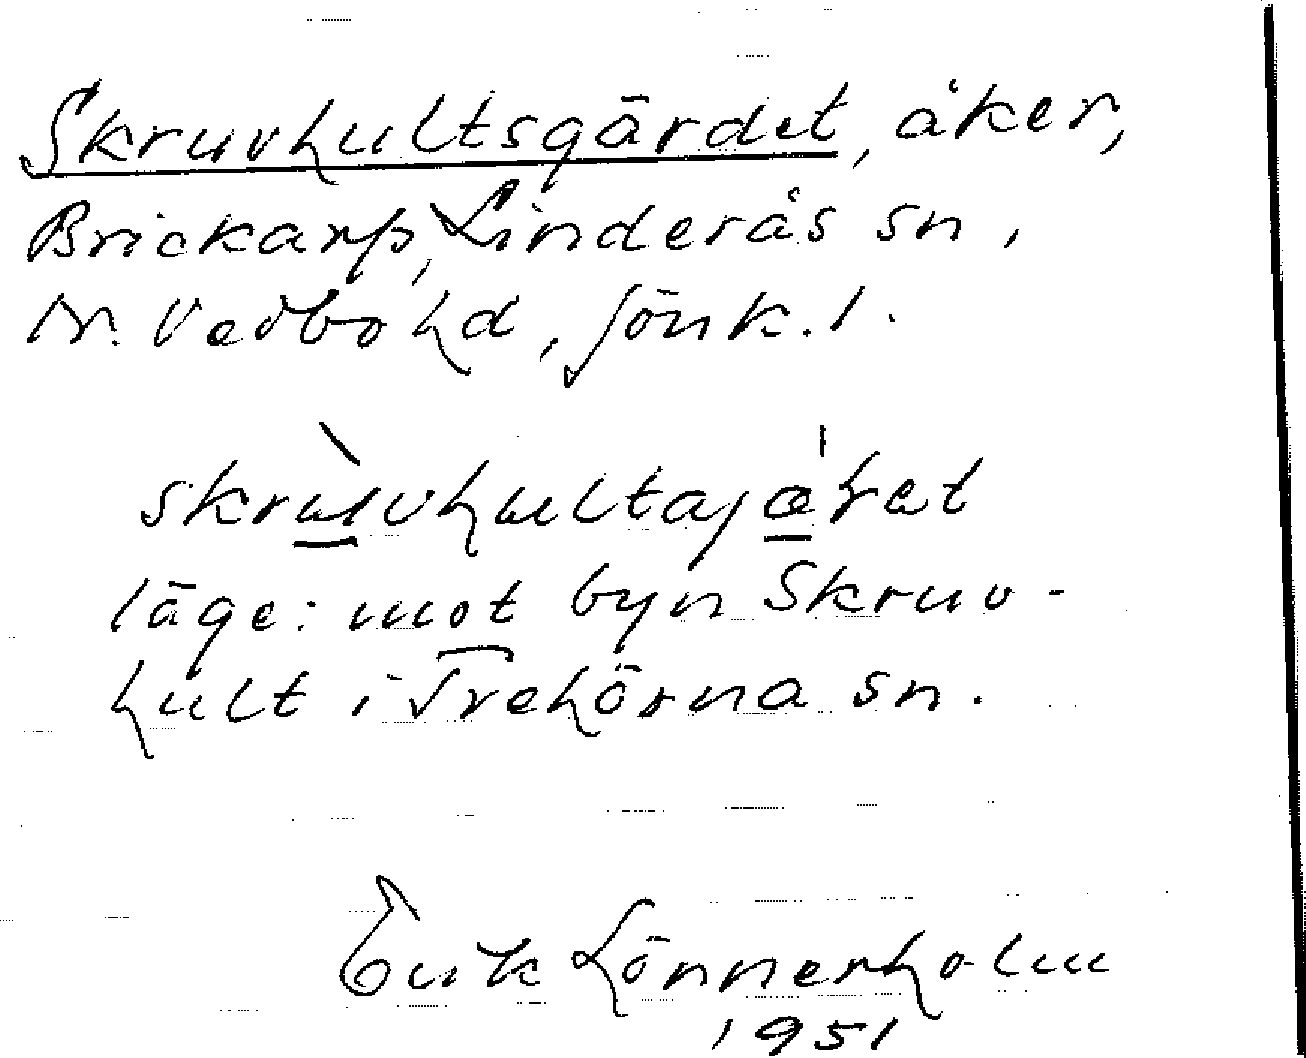 Skruvhultsgärdet, åker,
Brickarp, Linderås sn,
N. Vedbo hd, Jönk. l.
skruvhultajæret
läge: mot byn Skruv-
hult i Trehörna sn.
Erik Lönnerholm
1951